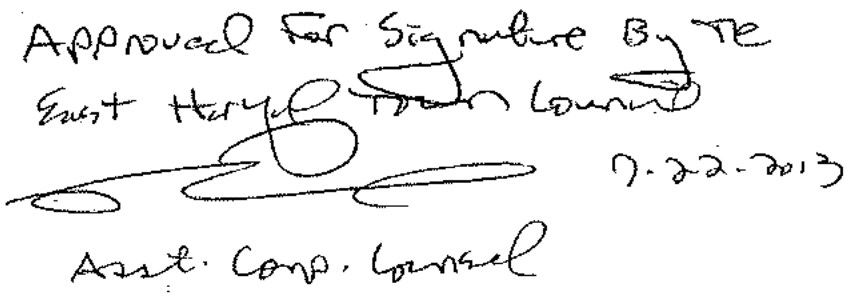 Approved For Signature By The
East Htfd Town Council
7-22-2013
Asst. Corp. Counsel